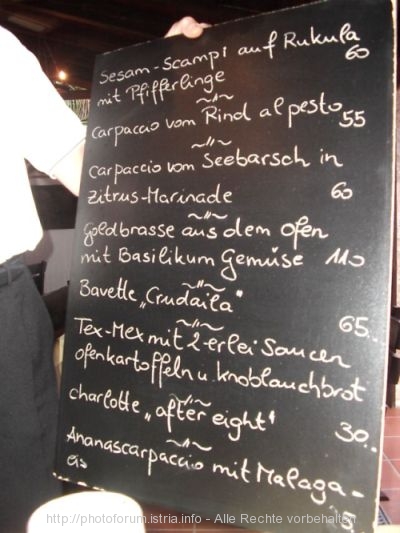 Sesam-Scampi auf Rukula
mit Pfifferlinge 60
~"~
Carpaccio vom Rind al pesto 55
~"~
Carpaccio vom Seebarsch in
Zitrus-Marinade 60
~"~
Goldbrasse aus dem Ofen
mit Basilikum Gemüse 110
~"~
Bavette „Crudaila"
~"~ 65..
Tex-Mex mit 2-erlei Saucen
Ofenkartoffeln u. Knoblauchbrot
~"~
charlotte „after eight" 30..
~"~
Ananascarpaccio mit Malaga-
eis
http://photoforum.istria.info - Alle Rechte vorbehalten